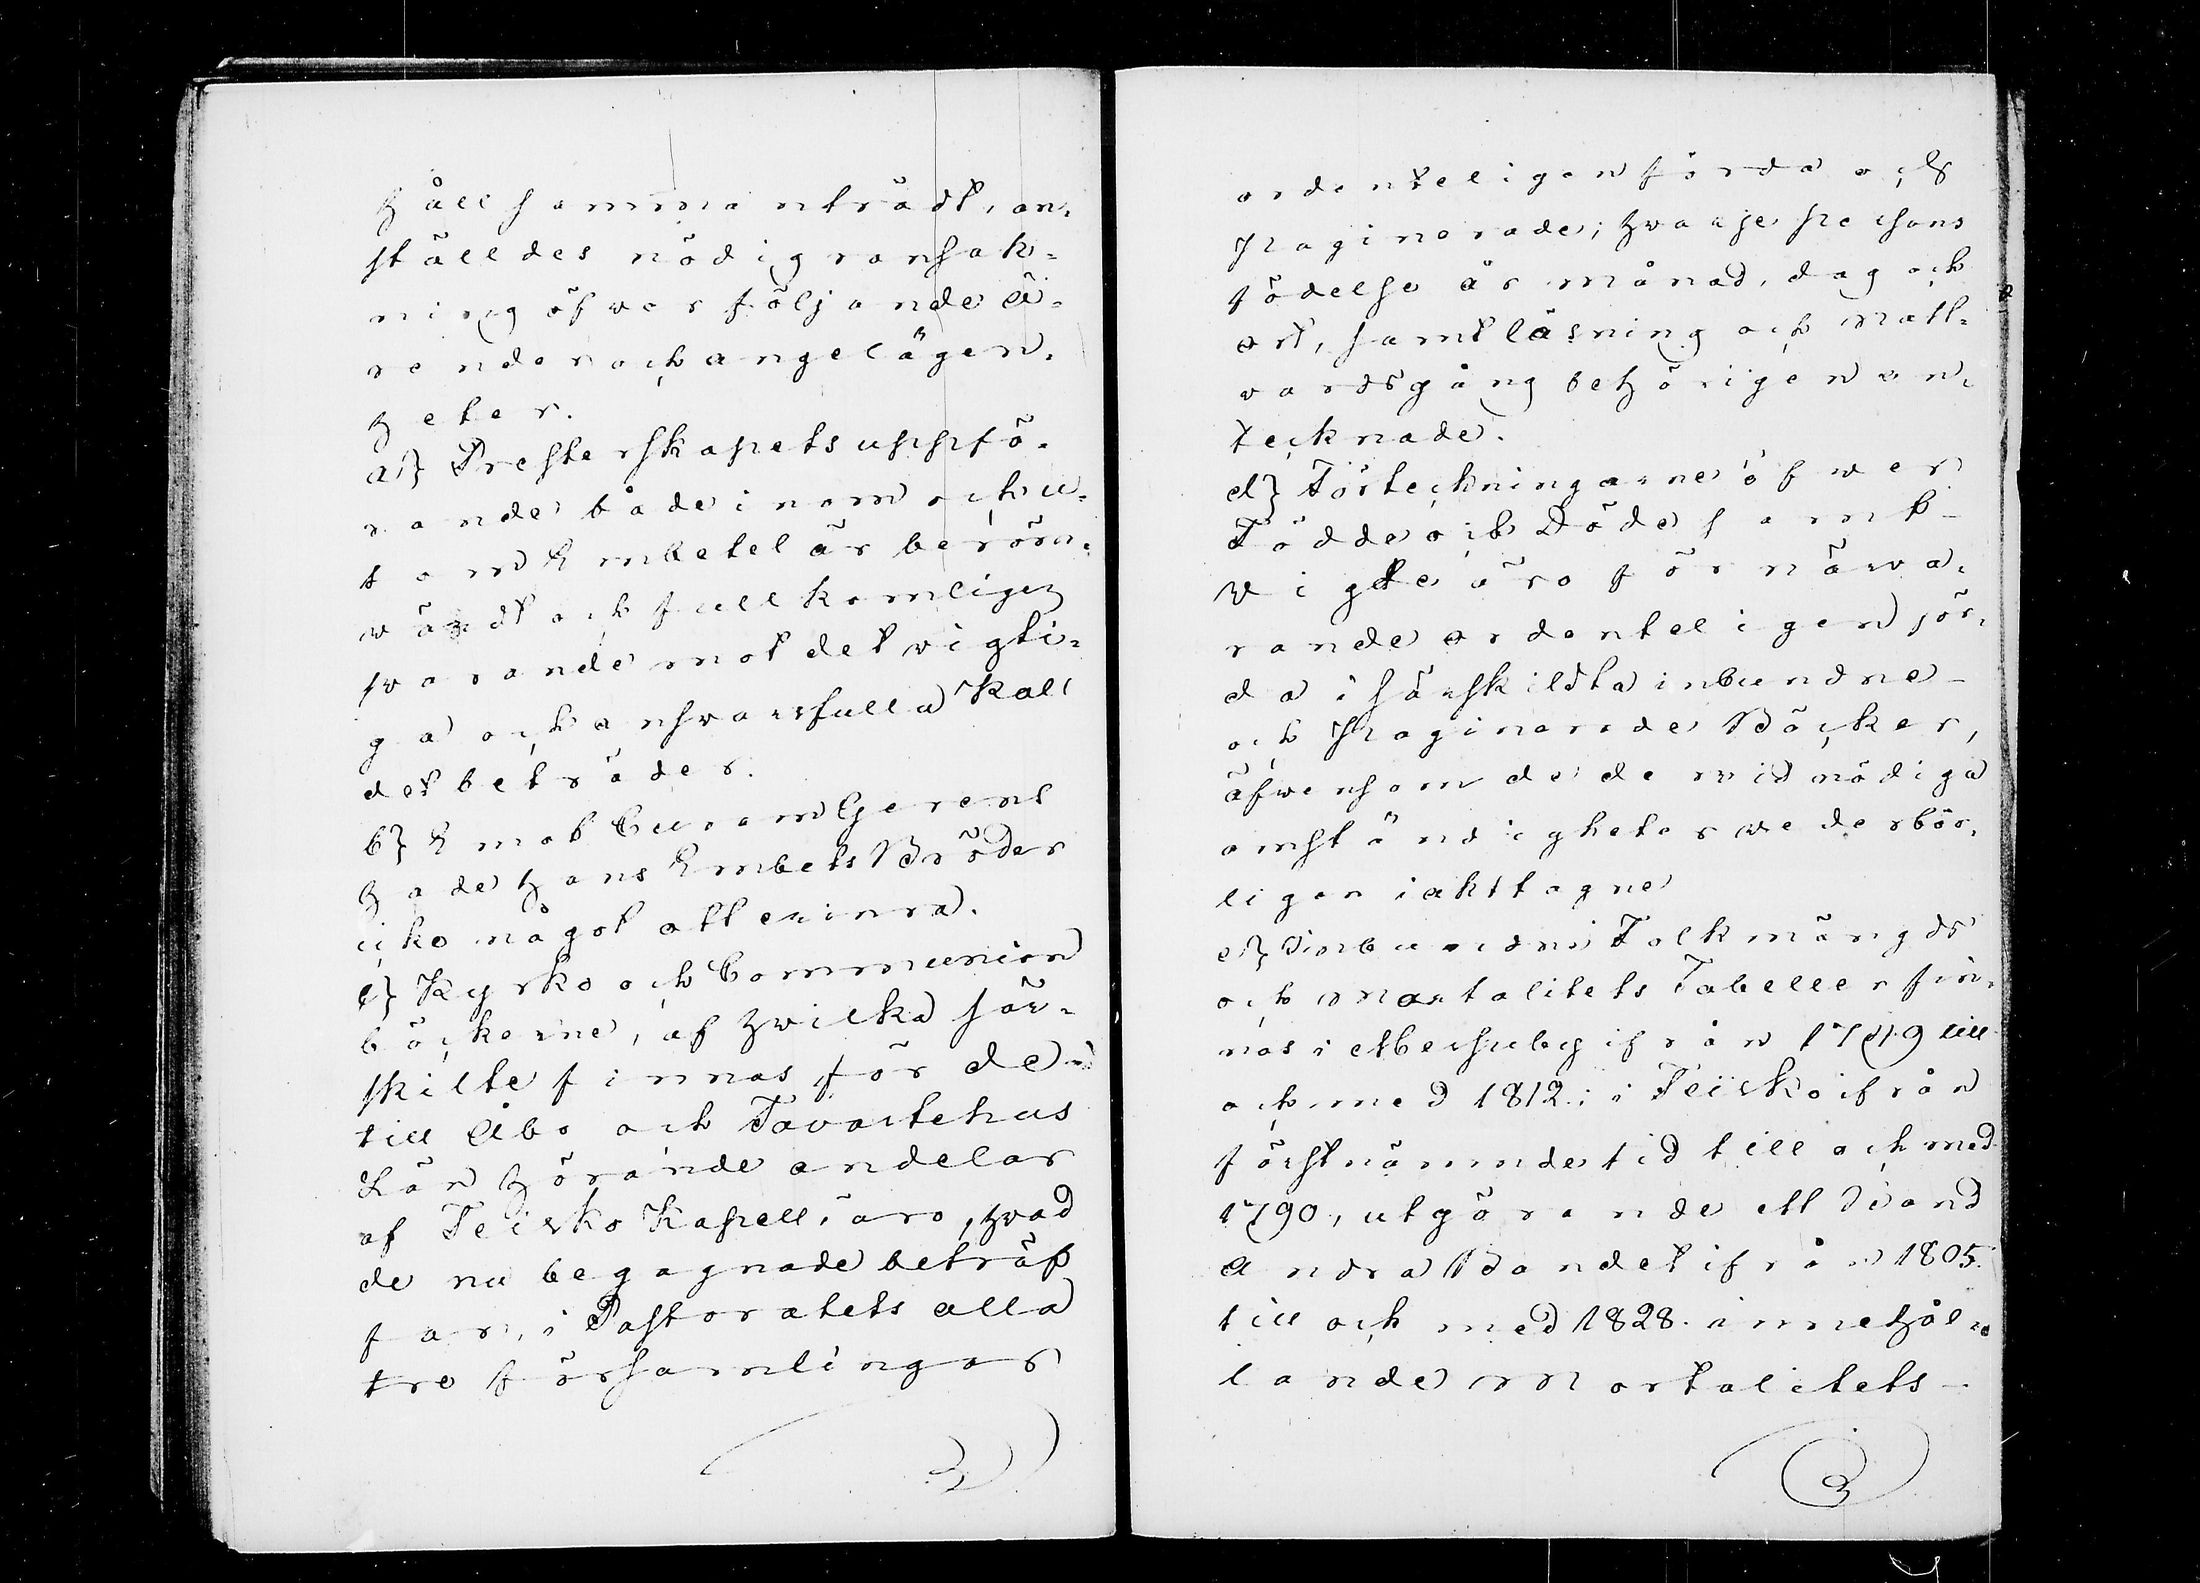 håll sammanträdt, an-
ställdes nödig ransak-
ning öfwer följande ä-
render och angelägen-
heter.
a} Presterskapets uppfö-
rande både inom och u-
tom Embetet är beröm-
wärdt och fullkomligen
swarande mot det vigti-
ga och ansvarsfulla Kall
det beträder.
b} Emot Curam Gerent
hade hans Embets Bröder
icke något att erinra.
c} Kyrko och Communion
böckerne, af hwilka sär-
skilte finnas för de
till Åbo och Tavastehus
Län hörande andelar
af Teisko Kapell, äro, hvad
de nu begagnade beträf
far, i Pastoratets alla
tre församlingar
ordenteligen förda och
paginerade; hvarje persons
födelse år månad, dag och
ort, samt läsning och natt-
vardsgång behörigen an-
tecknade.
d} Förteckningarne öfwer
Födde och Döde samt
Wigde äro för närwa-
rande ordenteligen för-
da i särskildta inbundne
och paginerade Böcker,
äfwensom de de wid nödiga
omständigheter wederbör-
ligen iakttagne
e} Inbundne Folkmängds
och Mortalitets Tabeller fin-
nas i Messuby ifrån 1749 till
och med 1812; i Teisko ifrån
förstnämnde tid till och med
1790, utgörande ett Band
Andra Bandet ifrån 1805.
till och med 1828. innehål-
lande Mortalitets